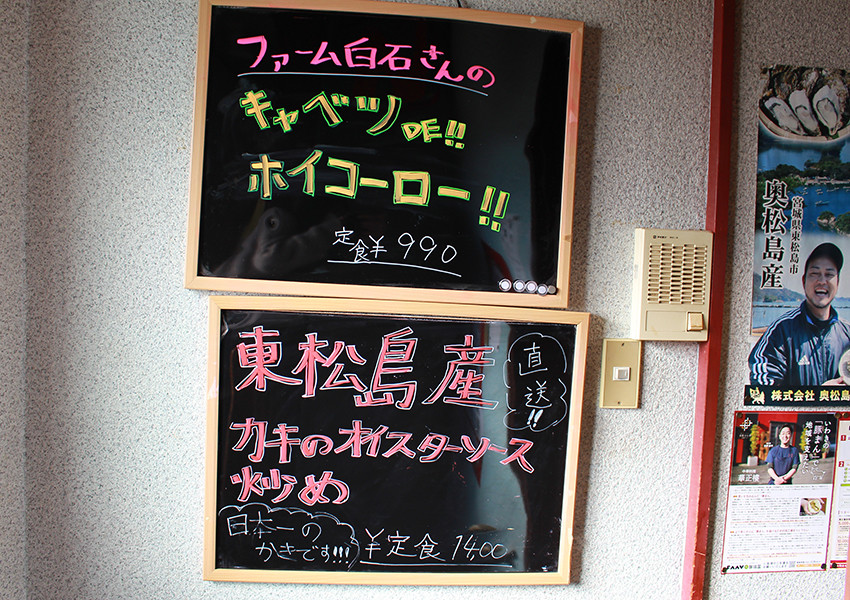 ファーム白石さんの
キャベツDE!!
ホイコーロー!!
定食¥990
東松島産
直送!!
カキのオイスターソース
炒め
日本一の
かきです!!!
¥定食1400
奥松島産
宮城県東松島市
株式会社 奥松島
いわきの
「豚まん」で
地域を支えたい
華正樓